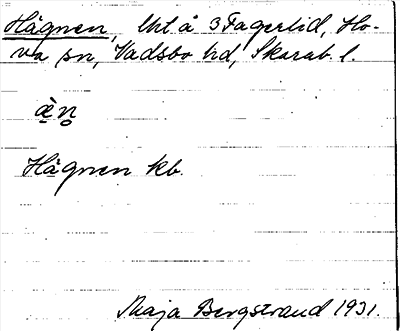 Hågnen, lht å 3 Fagerlid, Ho-
va sn, Vadsbo hd, Skarab. l.
Hågnen kb.
Maja Bergstrand 1931.